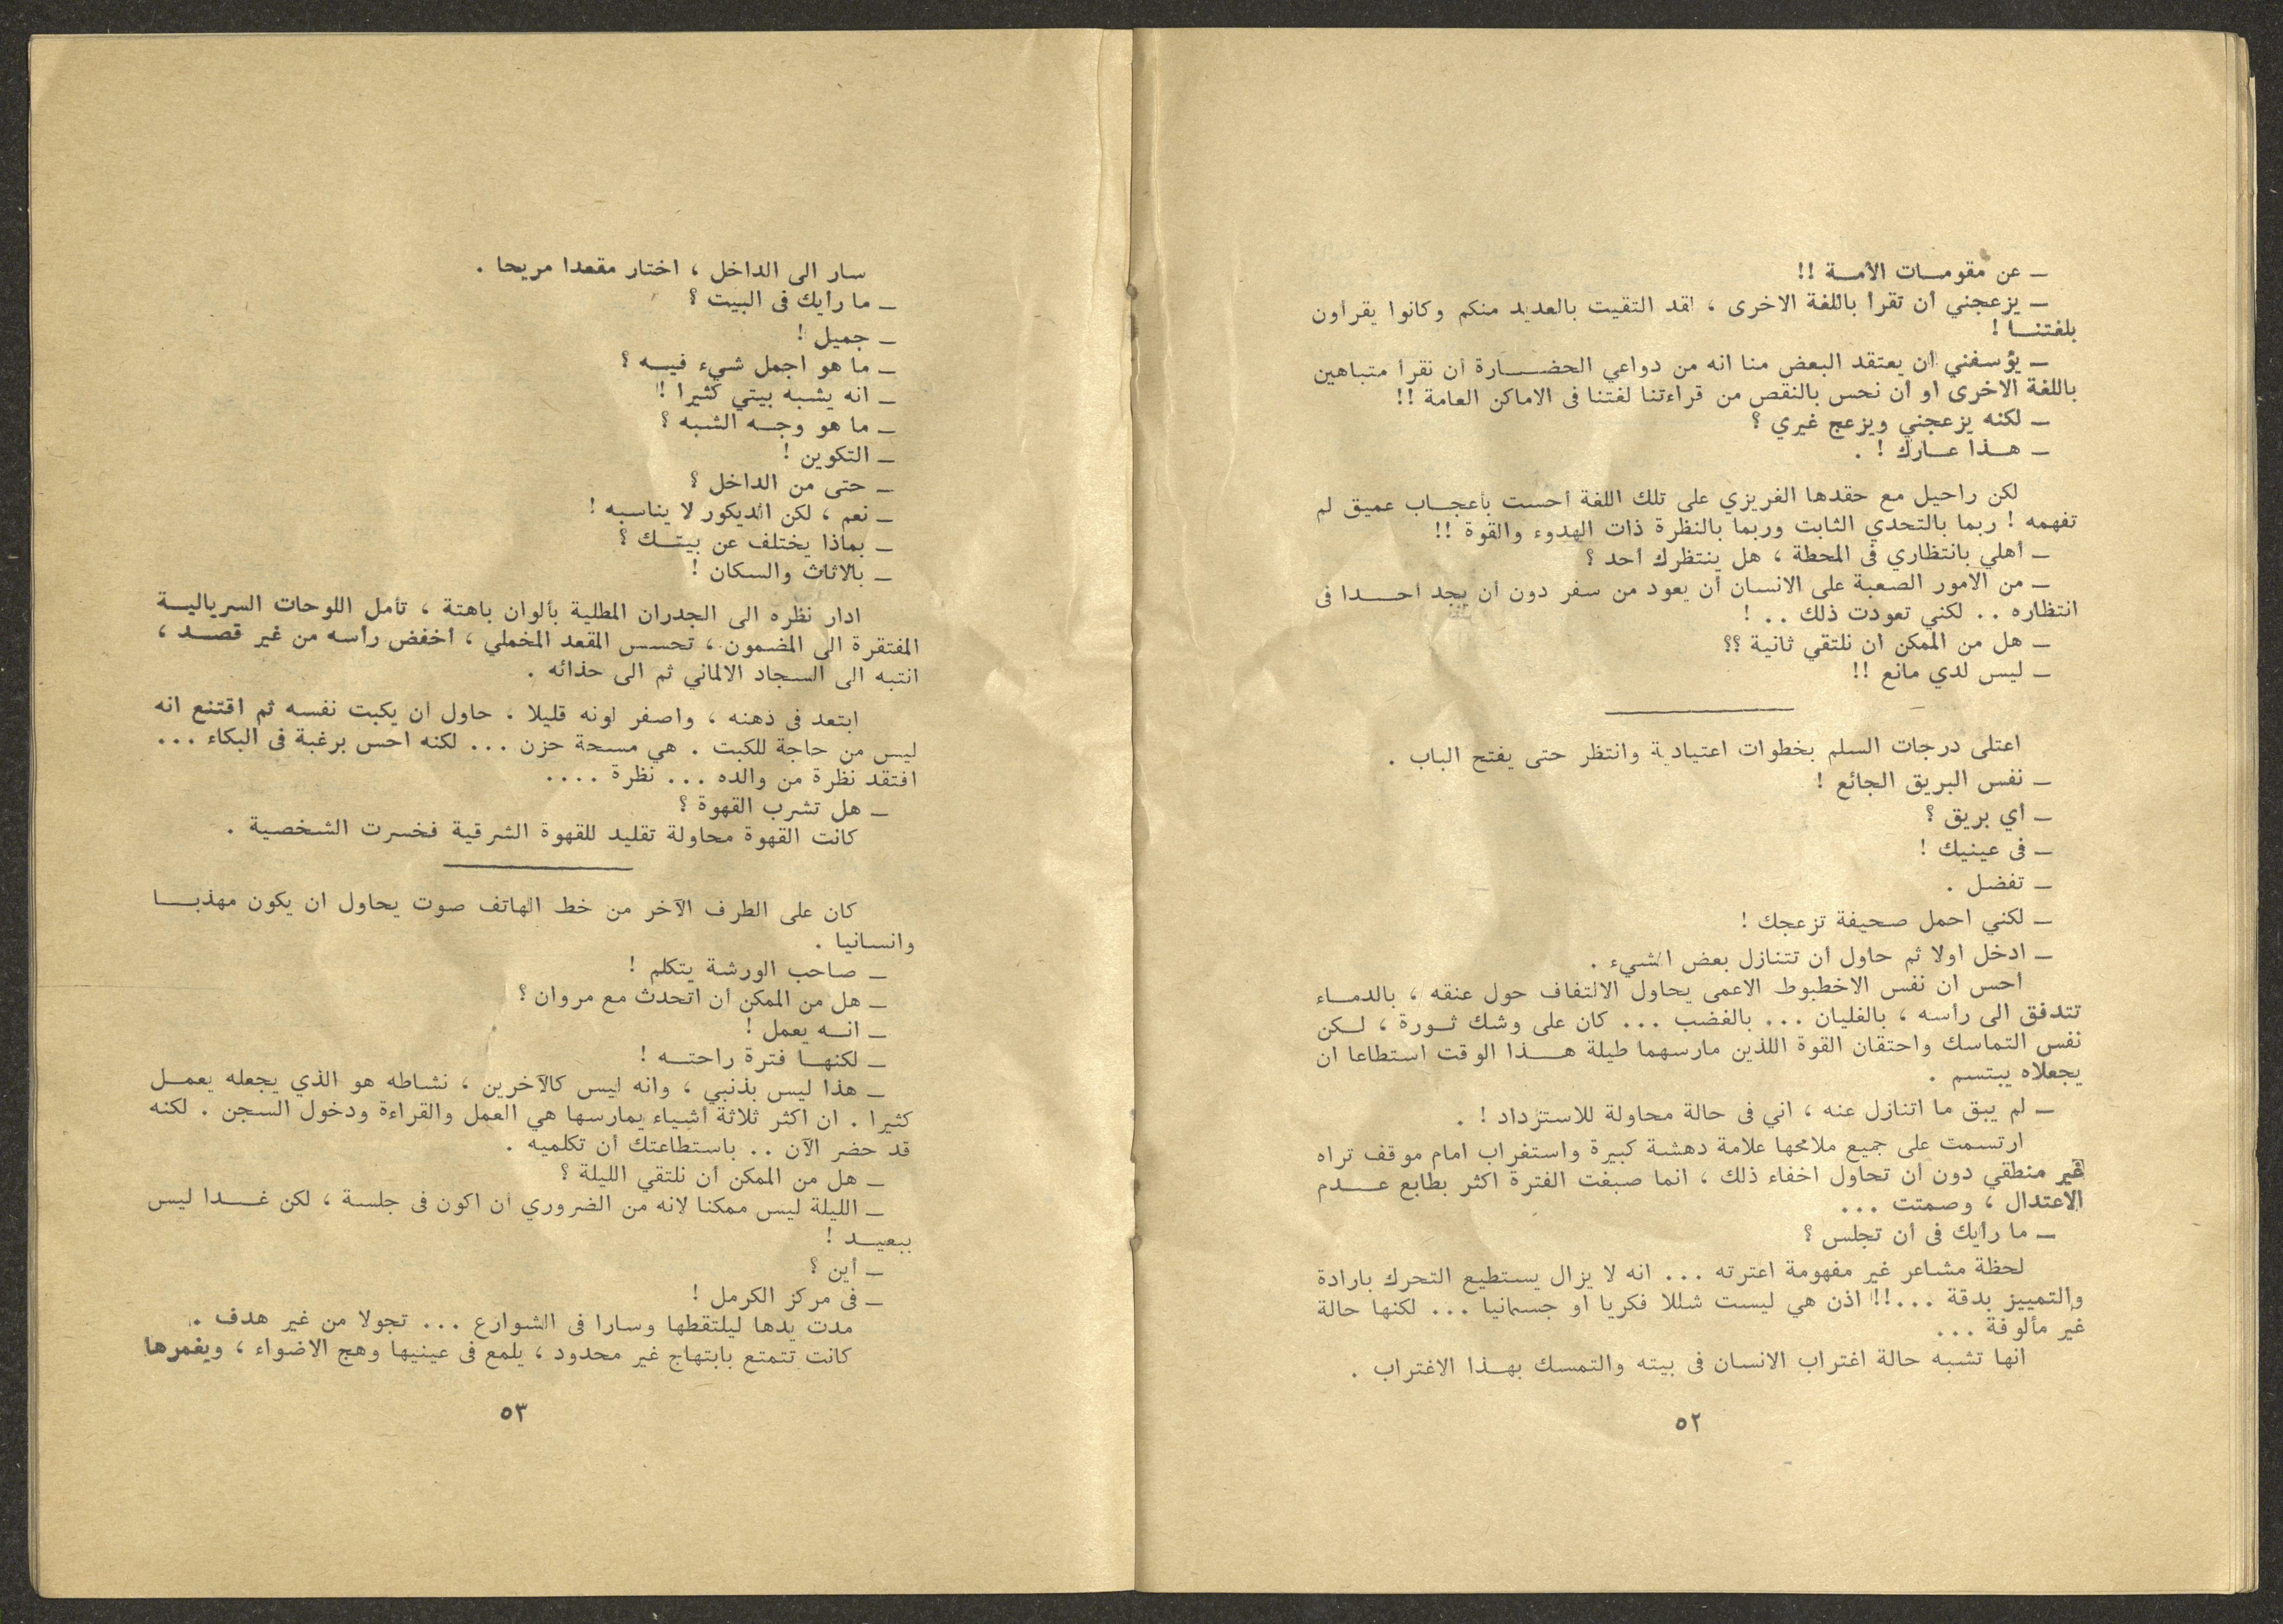 ـ عن مقومــات الأمــة !!
ـ يزعجني أن تقرأ باللغة الاخرى ، لقد التقيت بالعديد منكم وكانوا يقرأون
بلغتنــا !
ـ يؤسفني ان يعتقد البعض منا انه من دواعي الحضــــارة أن نقرأ متباهين
باللغة الاخرى او أن نحس بالنقص من قراءتنا لغتنا فى الاماكن العامة !!
ـ لكنه يزعجني ويزعج غيري ؟
ـ هــذا عــارك ! .
لكن راحيل مع حقدها الغريزي على تلك اللغة أحست بأعجــاب عميق لم
تفهمه ! ربما بالتحدي الثابت وربما بالنظرة ذات الهدوء والقوة !!
ـ أهلي بانتظاري فى المحطة ، هل ينتظرك أحد ؟
ـ من الامور الصعبة على الانسان أن يعود من سفر دون أن يجد احــــدا فى
انتظاره .. لكني تعودت ذلك .. !
ـ هل من الممكن ان نلتقي ثانية ؟؟
ـ ليس لدي مانع !!
اعتلى درجات السلم بخطوات اعتيادية وانتظر حتى يفتح الباب .
ـ نفس البريق الجائع !
ـ أي بريق ؟
ـ فى عينيك !
ـ تفضل .
ـ لكني احمل صحيفة تزعجك !
ـ ادخل اولا ثم حاول أن تتنازل بعض الشيء .
أحس ان نفس الاخطبوط الاعمى يحاول الالتفاف حول عنقه ، بالدمــاء
تتدفق الى رأسه ، بالغليان ... بالغضب ... كان على وشك ثــورة ، لــكن
نفس التماسك واحتقان القوة اللذين مارسهما طيلة هــــذا الوقت استطاعا ان
يجعلاه يبتسم .
ـ لم يبق ما اتنازل عنه ، اني فى حالة محاولة للاسترداد ! .
ارتسمت على جميع ملامحها علامة دهشة كبيرة واستغراب امام موقف تراه
غير منطقي دون أن تحاول اخفاء ذلك ، انما صبغت الفترة اكثر بطابع عــــدم
الاعتدال ، وصمتت ...
ـ ما رأيك فى أن تجلس ؟
لحظة مشاعر غير مفهومة اعترته ... انه لا يزال يستطيع التحرك بارادة
والتمييز بدقة ...!! اذن هي ليست شللا فكريا او جسمانيا ... لكنها حالة
غير مألوفة ...
انها تشبه حالة اغتراب الانسان فى بيته والتمسك بهــذا الاغتراب .
٥٢
سار الى الداخل ، اختار مقعدا مريحا .
ـ ما رأيك فى البيت ؟
ـ جميل !
ـ ما هو اجمل شيء فيــه ؟
ـ انه يشبه بيتي كثيرا !
ـ ما هو وجــه الشبه ؟
ـ التكوين !
ـ حتى من الداخل ؟
ـ نعم ، لكن الديكور لا يناسبه !
ـ بماذا يختلف عن بيتــك ؟
ـ بالاثاث والسكان !
ادار نظره الى الجدران المطلية بألوان باهتة ، تأمل اللوحات السرياليــة
المفتقرة الى المضمون ، تحسس المقعد المخملي ، أخفض رأسه من غير قصــد ،
انتبه الى السجاد الالماني ثم الى حذائه .
ابتعد فى ذهنه ، واصفر لونه قليلا . حاول أن يكبت نفسه ثم اقتنع انه
ليس من حاجة للكبت . هي مسحة حزن ... لكنه احس برغبة فى البكاء ...
افتقد نظرة من والده ... نظرة ....
ـ هل تشرب القهوة ؟
كانت القهوة محاولة تقليد للقهوة الشرقية فخسرت الشخصية .
كان على الطرف الآخر من خط الهاتف صوت يحاول ان يكون مهذبــــا
وانسانيا .
ـ صاحب الورشة يتكلم !
ـ هل من الممكن أن اتحدث مع مروان ؟
ـ انــه يعمل !
ـ لكنهــا فترة راحتــه !
ـ هذا ليس بذنبي ، وانه ليس كالآخرين ، نشاطه هو الذي يجعله يعمــل
كثيرا . ان اكثر ثلاثة أشياء يمارسها هي العمل والقراءة ودخول السجن . لكنه
قد حضر الآن .. باستطاعتك أن تكلميه .
ـ هل من الممكن أن نلتقي الليلة ؟
ـ الليلة ليس ممكنا لانه من الضروري أن اكون فى جلسة ، لكن غــــدا ليس
ببعيــد !
ـ أين ؟
ـ فى مركز الكرمل !
مدت يدها ليلتقطها وسارا فى الشوارع ... تجولا من غير هدف .
كانت تتمتع بابتهاج غير محدود ، يلمع فى عينيها وهج الاضواء ، ويغمرها
٥٣